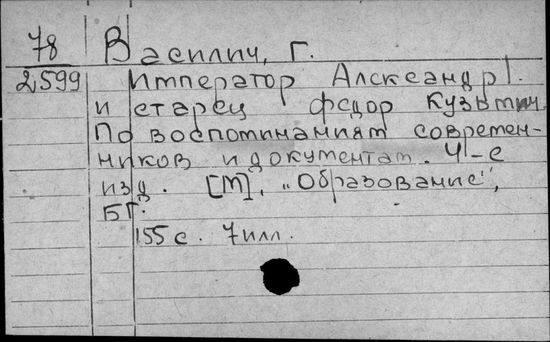 78 Василич, Г.
2599 Император Александр I.
и старец Федор Кузьмич.
По воспоминаниям современ-
ников и документам. 4-е
изд. [М], "Образование",
БГ.
155 с. 7 илл.